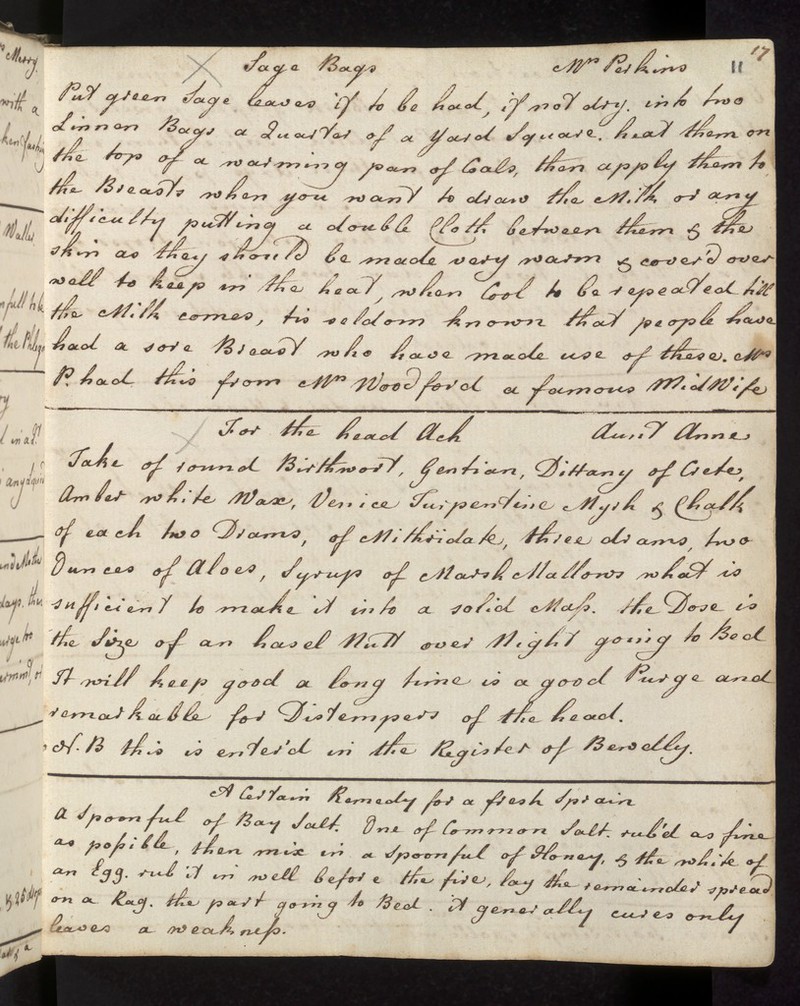 17
11
Sage Bags Mrs Perkins
Put green Sage leaves if to be had, if not dry. into two
Linnen Bags a Quarter of a Yard Square. heat them on
the top of a warming pan of Coals, then apply them to
the Breasts when you want to draw the Milk or any
difficulty putting a double Cloth between them & the
skin as they should be made very warm & cover'd over
well to keep in the heat, when Cool to be repeated till
the Milk comes, tis seldom known that people have
had a sore Breast who have made use of these. Mrs
P. had this from Mrs Woodford a famous MidWife
For the head Ach Aunt Anne
Take of round Birthwort, Gentian, Dittany of Crete,
Amber white Wax, Venice Turpentine Myrh & Chalk
of each two Drams, of Mithridate, three drams, two
Ounces of Aloes, Syrup of Marsh Mallows what is
sufficient to make it into a solid Mass. the Dose is
the Size of an hasel Nutt over Night going to Bed
It will keep good a long time is a good Purge and
remarkable for Distempers of the head.
N.B this is enter'd in the Register of Bewdly.
A Certain Remedy for a fresh Sprain
A Spoonful of Bay Salt. One of Common Salt. rub'd as fine
as possible, then mix in a Spoonful of Honey, & the white of
an Egg. rub it in well before the fire, lay the remainder spread
on a Rag. the part going to Bed. it generally cures only
leaves a weakness.